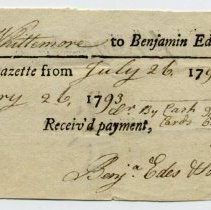 Whittemore to Benjamin Ed
azette from July 26. 179
ry 26, 1793
Cr. By Cash
Receiv'd payment, Cards
Benja. Edes